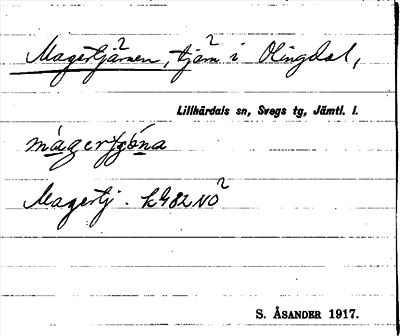 Magertjärnen, tjärn i Olingdal,
Lillhärdals sn, Svegs tg, Jämtl. l.
mágertjǫ́na
Magertj. k G82 NO²
S. ÅSANDER 1917.